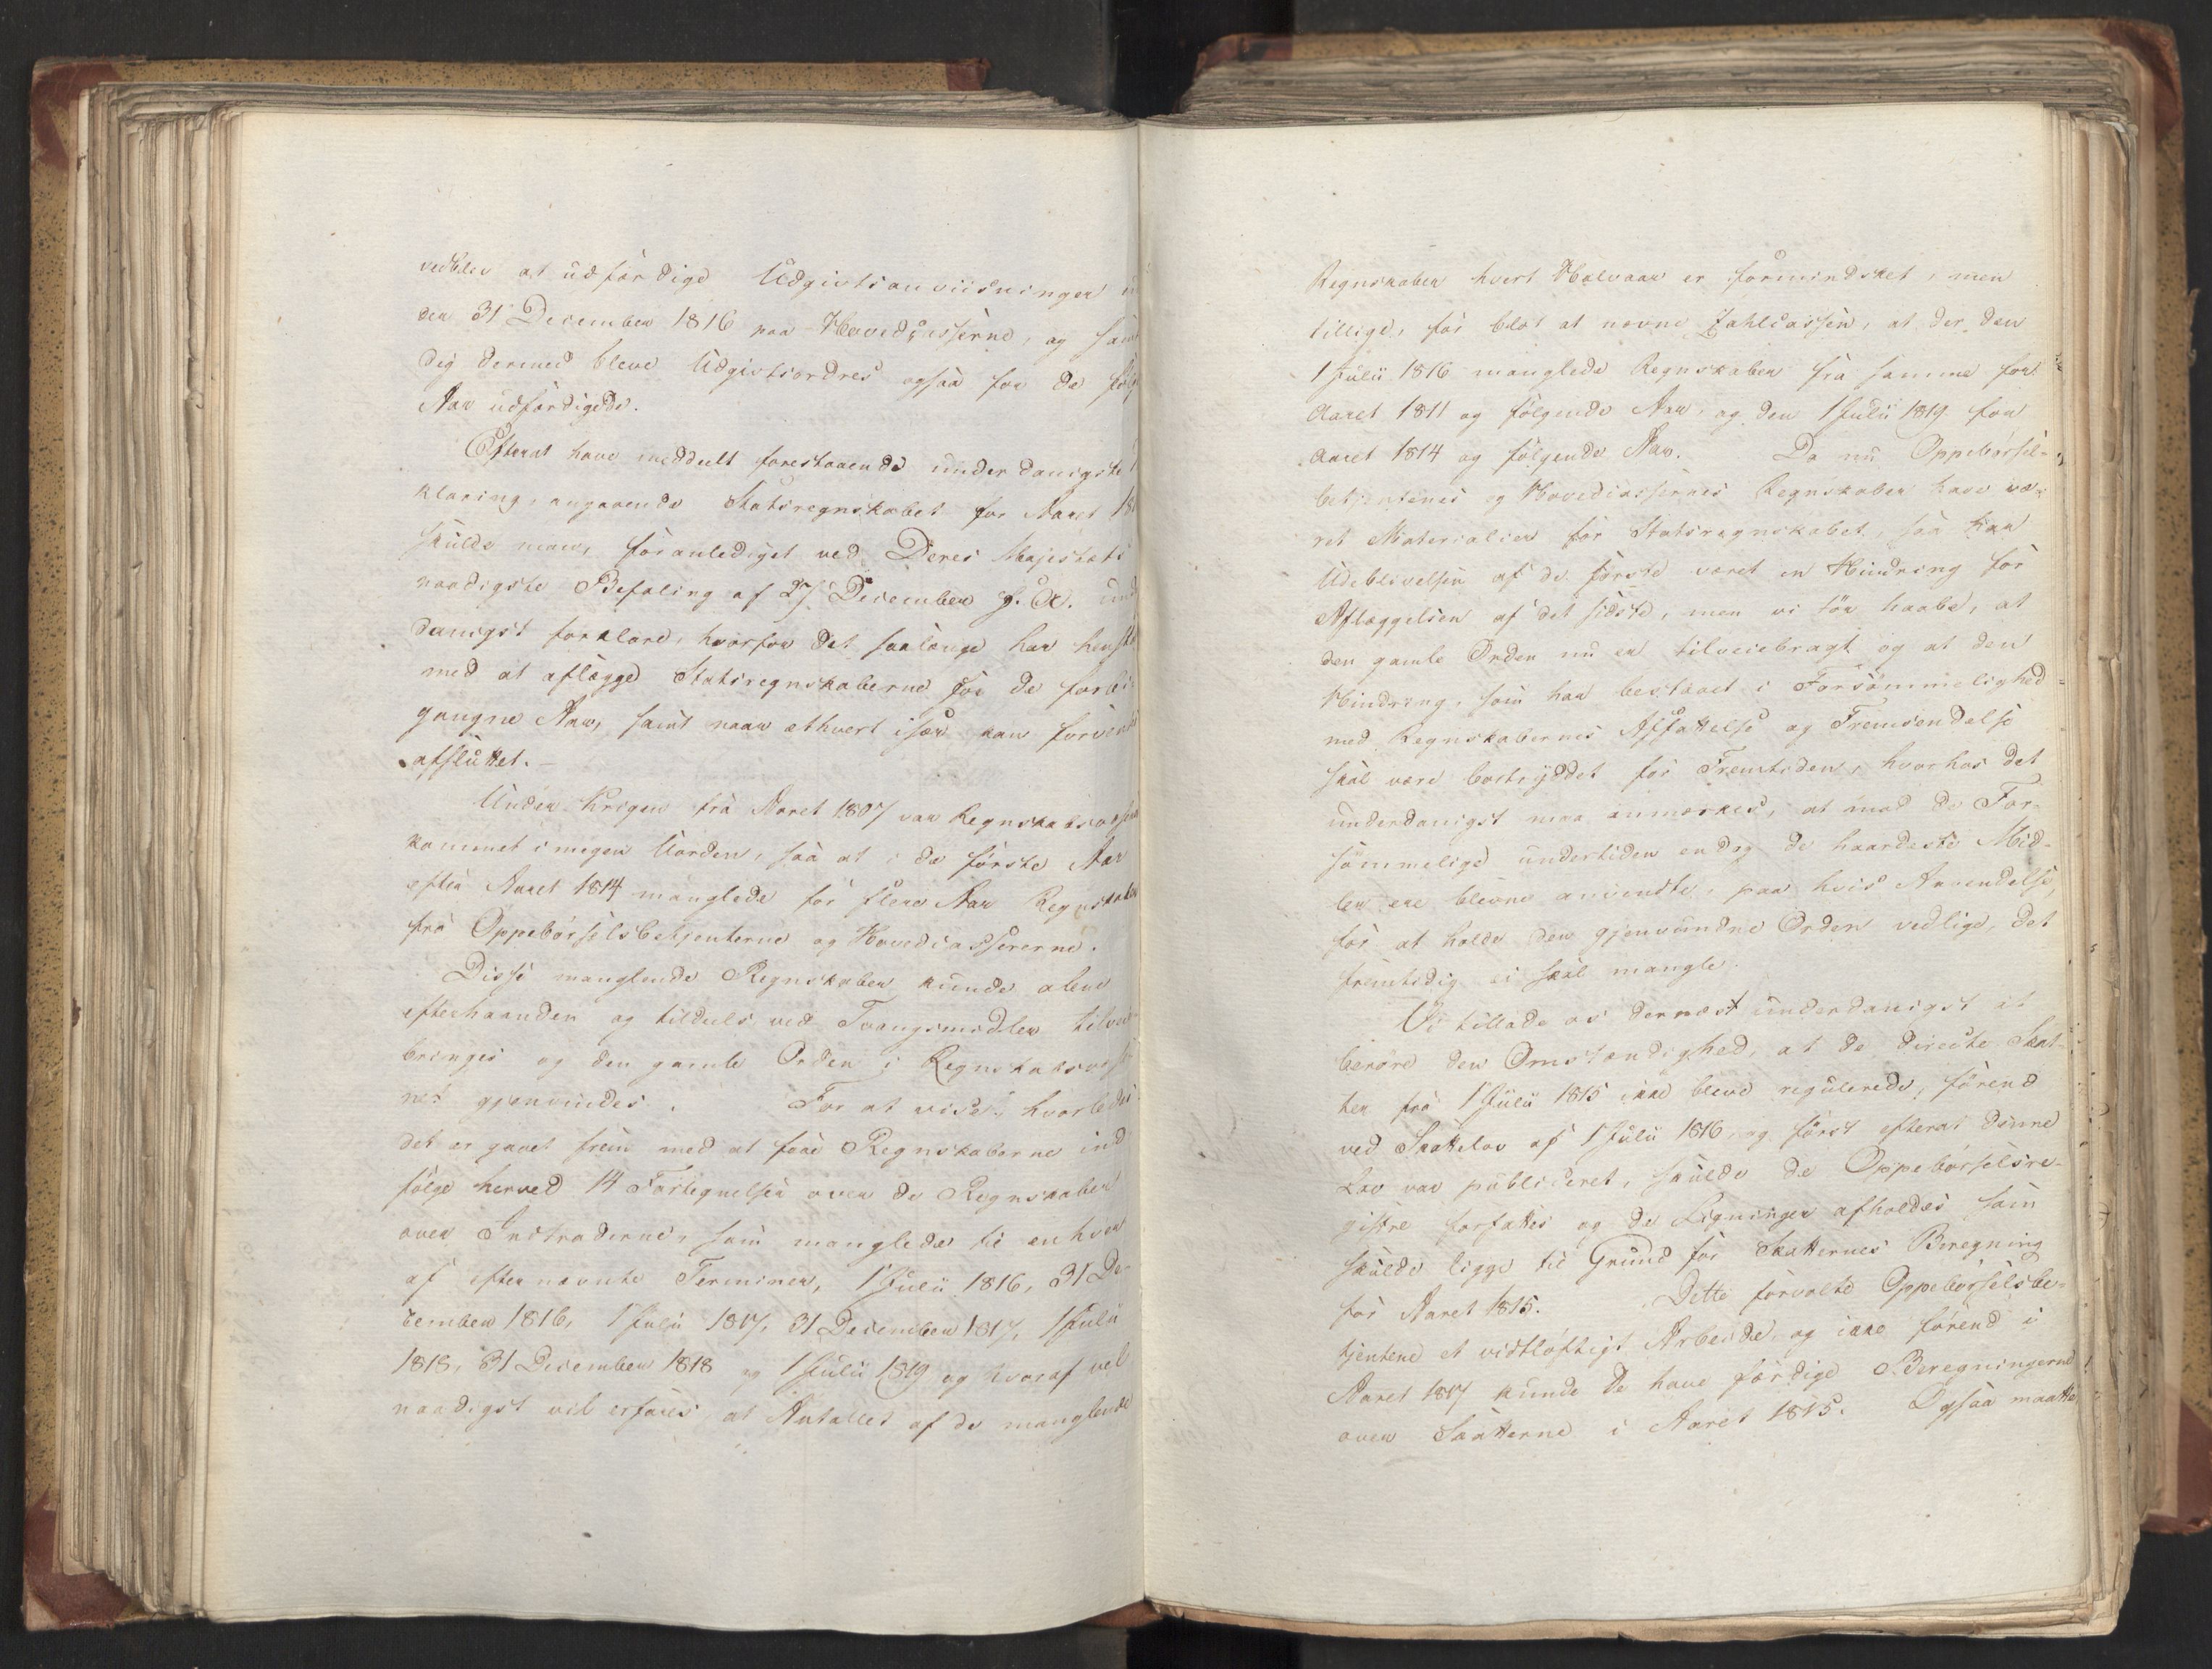 vedblev at udfærdige Udgivtsanviisninger
den 31 December 1816 paa Hovedcasserne, og sam
dig dermed bleve Udgivtsordres ogsaa for de følg
Aar udfærdigede.
Efterat have meddeelt forestaaende underdanigste
klaring, angaaende Statsregnskabet for Aaret 18
skulde man, foranlediget ved Deres Majestæts
naadigste Befaling af 27 December f. A. und
danigst forklare, hvorfor det saalænge har henst
med at aflægge Statsregnskaberne for de forbi-
gangne Aar, samt naar ethvert især kan forvent
afsluttet. –
Under Krigen fra Aaret 1807 var Regnskabsvæsen
kommet i megen Uorden, saa at i de første Aar
efter Aaret 1814 manglede for flere Aar Regnskaber
fra Oppebørselsbetjenterne og Hovedcassererne.
Disse manglende Regnskaber kunde alene
efterhaanden og tildeels ved Tvangsmidler tilvei-
bringes og den gamle Orden i Regnskabsvæse
net gjenvindes. For at vise, hvorledes
det er gaaet frem med at faae Regnskaberne ind
følge herved 14 Fortegnelser over de Regnskaber
over Intraderne, som manglede til enhver
af efternævnte Terminer, 1 Julii 1816, 31 De-
cember 1816, 1 Julii 1817, 31 December 1817, 1 Julii
1818, 31 December 1818 og 1 Julii 1819 og hvoraf vel
naadigst vil erfares, at Antallet af de manglende
Regnskaber hvert Halvaar er formindsket, men
tillige, for blot at nævne Zahlcassen, at der den
1 Julii 1816 manglede Regnskaber fra samme for
Aaret 1811 og følgende Aar, og den 1 Julii 1819 for
Aaret 1814 og følgende Aar. Da nu Oppebørsels-
betjentenes og Hovedcassernes Regnskaber have væ-
ret Materialier for Statsregnskabet, saa har
Udeblivelsen af de første været en Hindring for
Aflæggelsen af det sidste, men vi tør haabe, at
den gamle Orden nu er tilveiebragt og at den
Hindring, som har bestaaet i Forsømmelighed
med Regnskabernes Affattelse og Fremsendelse
skal være bortryddet for Fremtiden, hvorhos det
underdanigst maa anmærkes, at mod de For-
sømmelige undertiden endog de haardeste Mid-
ler ere blevne anvendte, paa hvis Anvendelse,
for at holde den gjenvundne Orden vedlige, det
fremtidig ei skal mangle.
Vi tillade os dernæst underdanigst at
berøre den Omstændighed, at de directe Skat-
ter fra 1 Julii 1815 ikke bleve regulerede, førend
ved Skattelov af 1 Julii 1816, og først efterat denne
Lov var publiceret, skulde de Oppebørselsre-
gistre forfattes og de Ligninger afholdes som
skulde ligge til Grund for Skatternes Beregning
for Aaret 1815. Dette forvolte Oppebørselsbe-
tjentene et vidtløftigt Arbeide, og ikke førend i
Aaret 1817 kunde de have færdige Beregningerne
over Skatterne i Aaret 1815. Ogsaa maatte